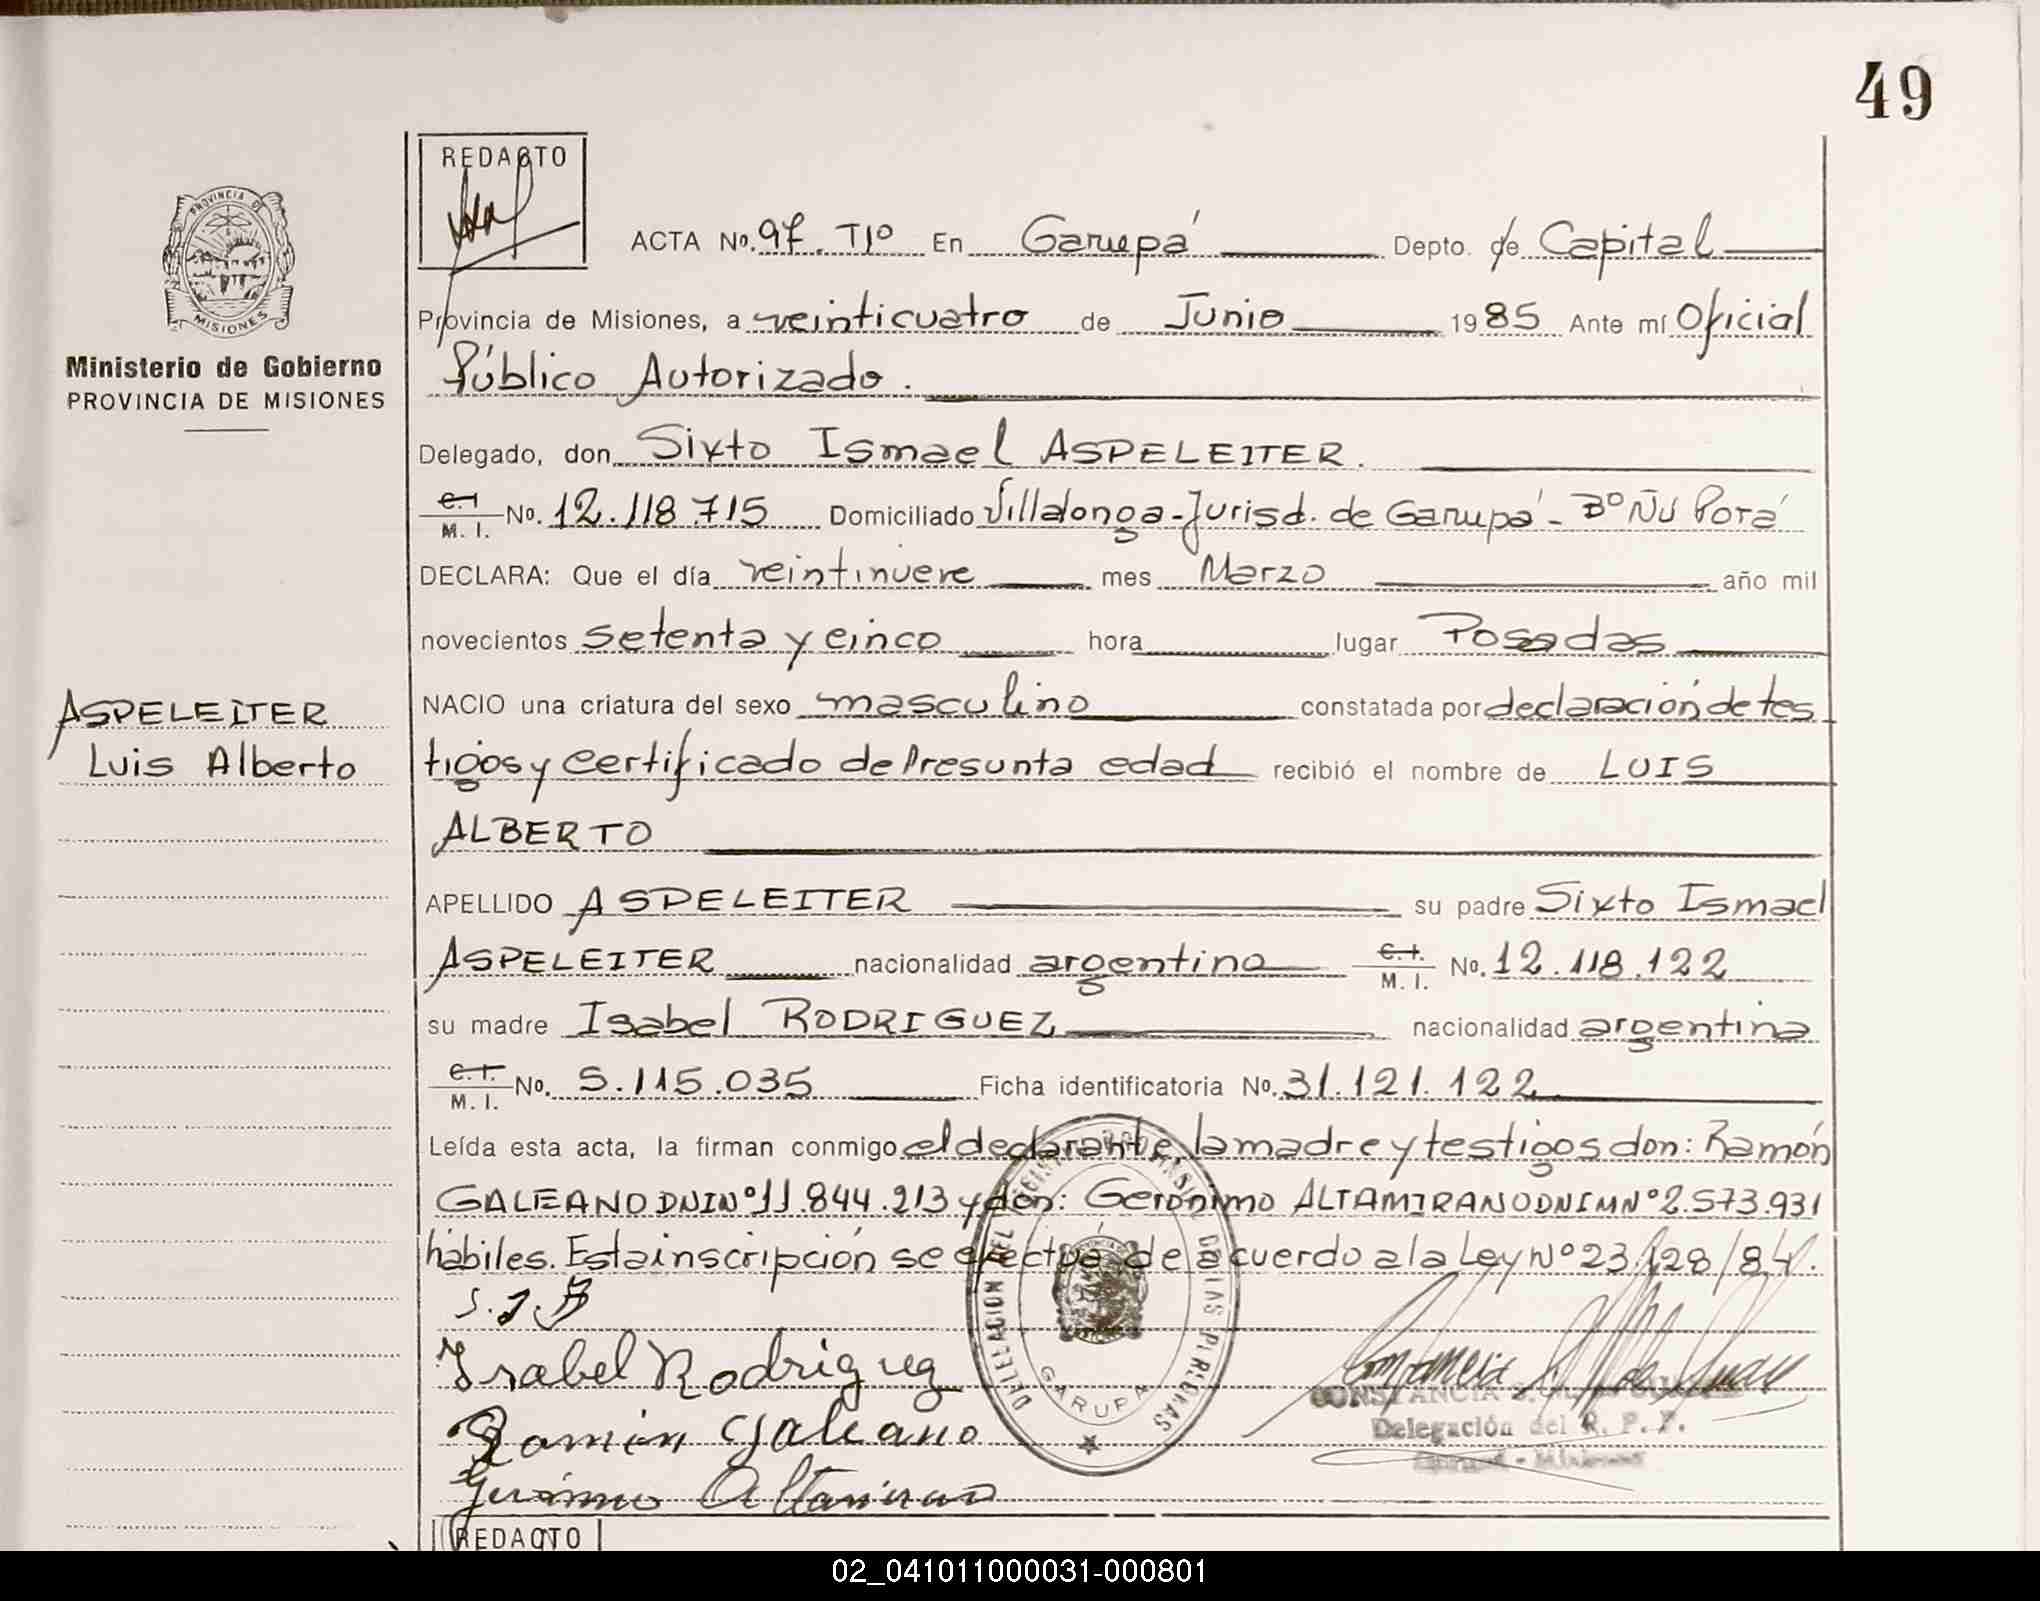 49
REDACTO
PROVINCIA DE
MISIONES
ACTA No. 97. Tº En Garupá Depto. de Capital
Provincia de Misiones, a veinticuatro de Junio 1985 Ante mí Oficial
Ministerio de Gobierno
PROVINCIA DE MISIONES
Público Autorizado.
Delegado, don Sixto Ismael ASPELEITER.
C.I. M. I. No. 12.118.715 Domiciliado Villalonga-Jurisd. de Garupá - Bº Ñú Porá
DECLARA: Que el día veintinueve mes Marzo año mil
novecientos setenta y cinco hora lugar Posadas
ASPELEITER
Luis Alberto
NACIO una criatura del sexo masculino constatada por declaración de tes
tigos y certificado de Presunta edad recibió el nombre de LUIS
ALBERTO
APELLIDO ASPELEITER su padre Sixto Ismael
ASPELEITER nacionalidad argentina C.I. M. I. No. 12.118.122
su madre Isabel RODRIGUEZ nacionalidad argentina
C.I. M. I. No. 5.115.035 Ficha identificatoria No. 31.121.122
Leída esta acta, la firman conmigo el declarante, la madre y testigos don: Ramón
GALEANO DNI Nº 11.844.213 y don: Gerónimo ALTAMIRANO DNI MNº 2.573.931
hábiles. Esta inscripción se efectúa de acuerdo a la Ley Nº 23.128/84.
S.I.A
Isabel Rodriguez
Ramón Galeano
Gerónimo Altamirano
DELEGACION DEL REGISTRO PROVINCIAL DE LAS PERSONAS
GARUPA
CONSTANCIA S.
Delegación del R. P. P.
Garupá - Misiones
REDACTO
02_041011000031-000801